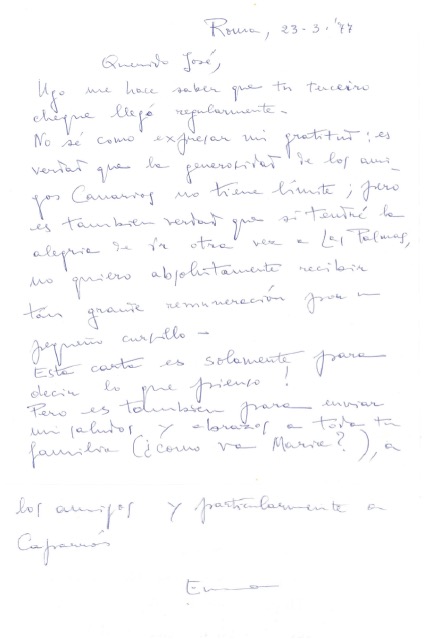 Roma, 23-3.'77
Querido José,
Ugo me hace saber que tu tercero
cheque llegó regularmente.
No sé como expresar mi gratitud: es
verdad que la generosidad de los ami-
gos Canarios no tiene límite; pero
es tambien verdad que si tendré la
alegria de ir otra vez a Las Palmas,
no quiero absolutamente recibir
tan grande remuneración por un
pequeño cursillo -
Esta carta es solamente para
decir lo que pienso!
Pero es tambien para enviar
mi saludos y abrazos a toda tu
familia (¿como va Maria?), a
los amigos y particularmente a
Caparrós